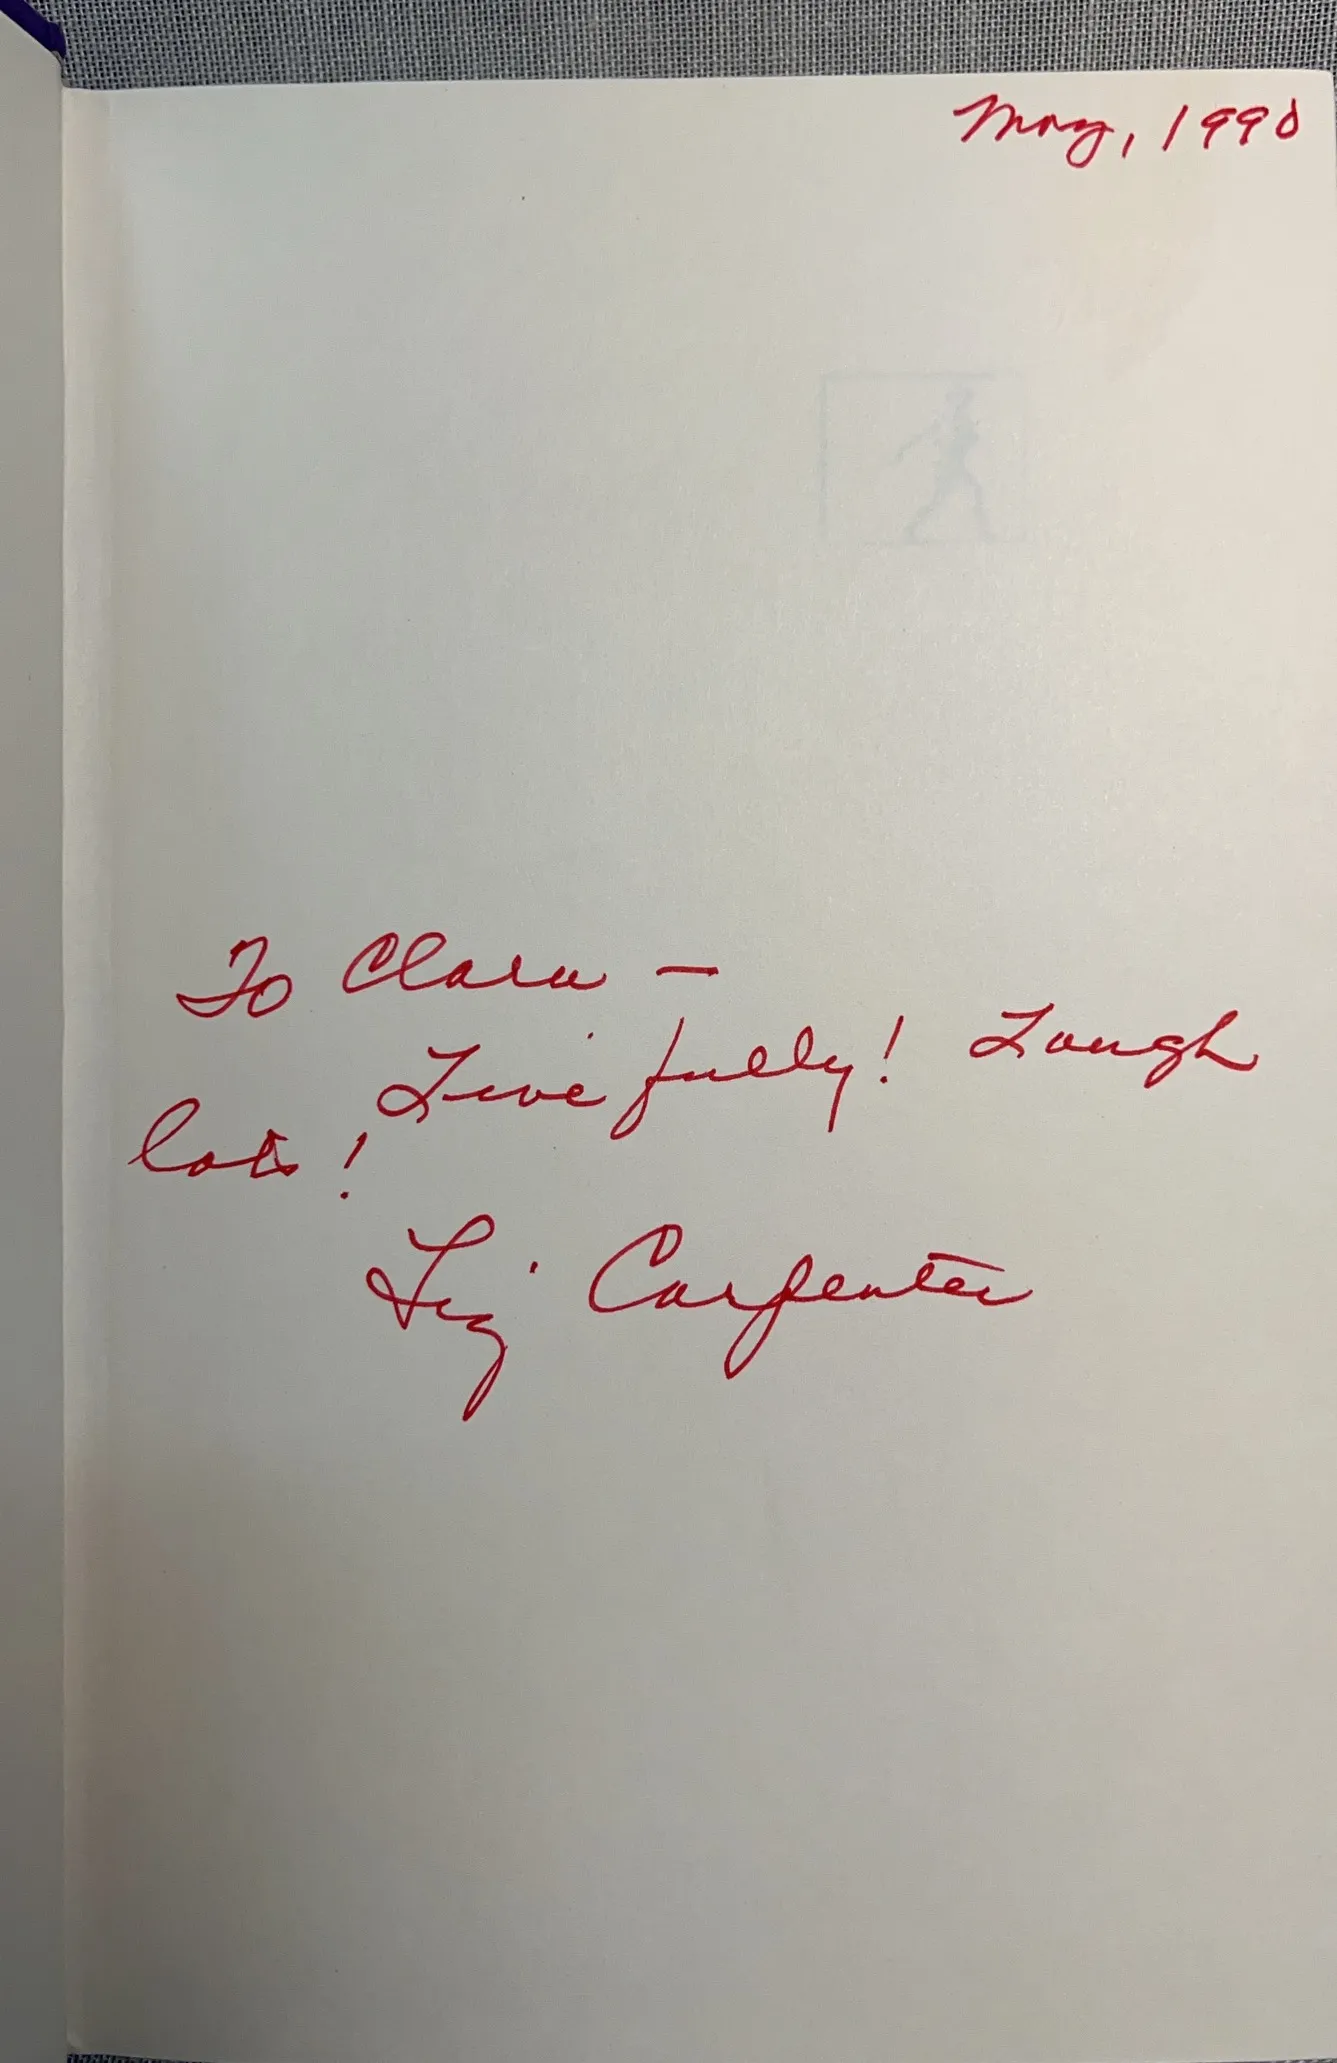 May, 1990
To Clara —
Live fully! Laugh
lots!
Liz Carpenter